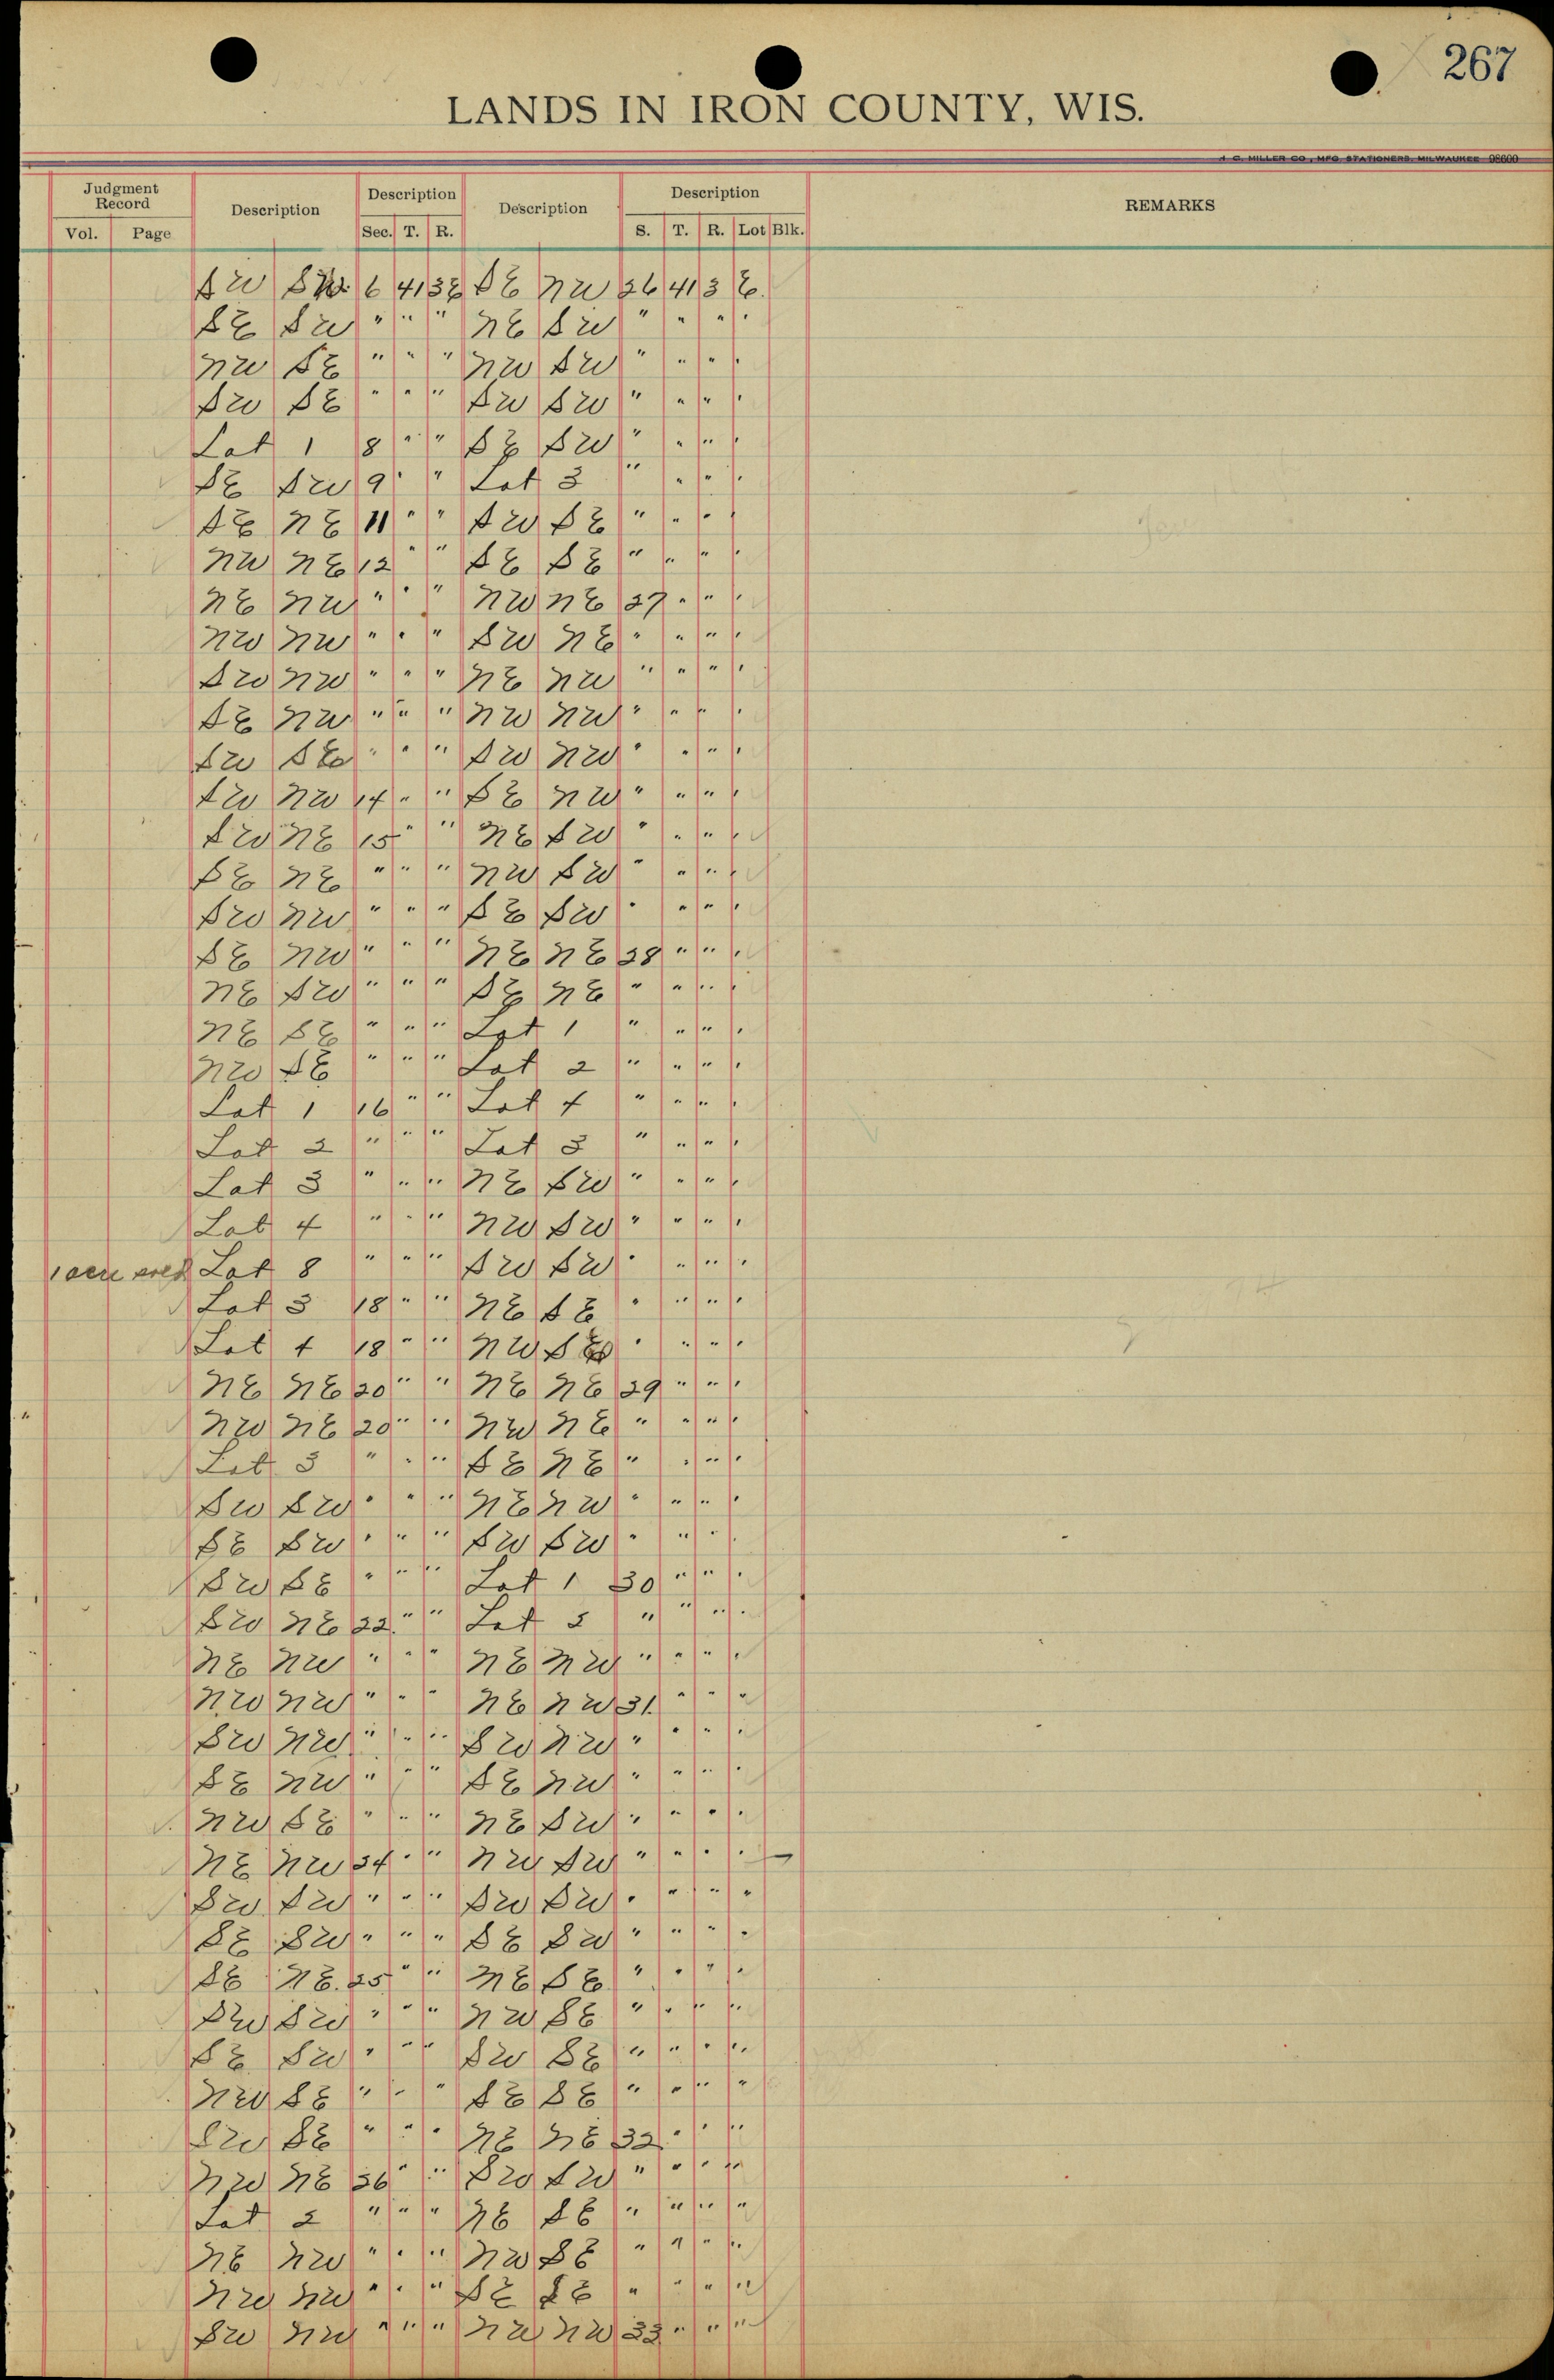 267
LANDS IN IRON COUNTY, WIS.
H. C. MILLER CO., MFG. STATIONERS, MILWAUKEE 98600
Judgment Record Description Description Description Description REMARKS
Vol. Page Sec. T. R. S. T. R. Lot Blk.
SW SW 6 41 3E SE NW 26 41 3 E.
SE SW " " " NE SW " " " "
NW SE " " " NW SW " " " "
SW SE " " " SW SW " " " "
Lot 1 8 " " SE SW " " " "
SE SW 9 " " Lot 3 " " " "
SE NE 11 " " SW SE " " " "
NW NE 12 " " SE SE " " " "
NE NW " " " NW NE 27 " " "
NW NW " " " SW NE " " " "
SW NW " " " NE NW " " " "
SE NW " " " NW NW " " " "
SW SE " " " SW NW " " " "
SW NW 14 " " SE NW " " " "
SW NE 15 " " NE SW " " " "
SE NE " " " NW SW " " " "
SW NW " " " SE SW " " " "
SE NW " " " NE NE 28 " " "
NE SW " " " SE NE " " " "
NE SE " " " Lot 1 " " " "
NW SE " " " Lot 2 " " " "
Lot 1 16 " " Lot 4 " " " "
Lot 2 " " " Lot 3 " " " "
Lot 3 " " " NE SW " " " "
Lot 4 " " " NW SW " " " "
1 acre sold Lot 8 " " " SW SW " " " "
Lot 3 18 " " NE SE " " " "
Lot 4 18 " " NW SE " " " "
NE NE 20 " " NE NE 29 " " "
NW NE 20 " " NW NE " " " "
Lot 3 " " " SE NE " " " "
SW SW " " " NE NW " " " "
SE SW " " " SW SW " " " "
SW SE " " " Lot 1 30 " " "
SW NE 22 " " Lot 2 " " " "
NE NW " " " NE NW " " " "
NW NW " " " NE NW 31 " " "
SW NW " " " SW NW " " " "
SE NW " " " SE NW " " " "
NW SE " " " NE SW " " " "
NE NW 24 " " NW SW " " " "
SW SW " " " SW SW " " " "
SE SW " " " SE SW " " " "
SE NE 25 " " NE SE " " " "
SW SW " " " NW SE " " " "
SE SW " " " SW SE " " " "
NW SE " " " SE SE " " " "
SW SE " " " NE NE 32 " " "
NW NE 26 " " SW SW " " " "
Lot 2 " " " NE SE " " " "
NE NW " " " NW SE " " " "
NW NW " " " SE SE " " " "
SW NW " " " NW NW 33 " " "